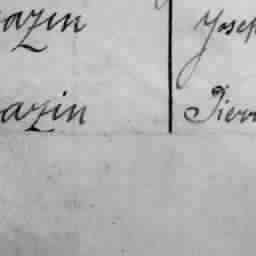 azin Josep
azin Pierr